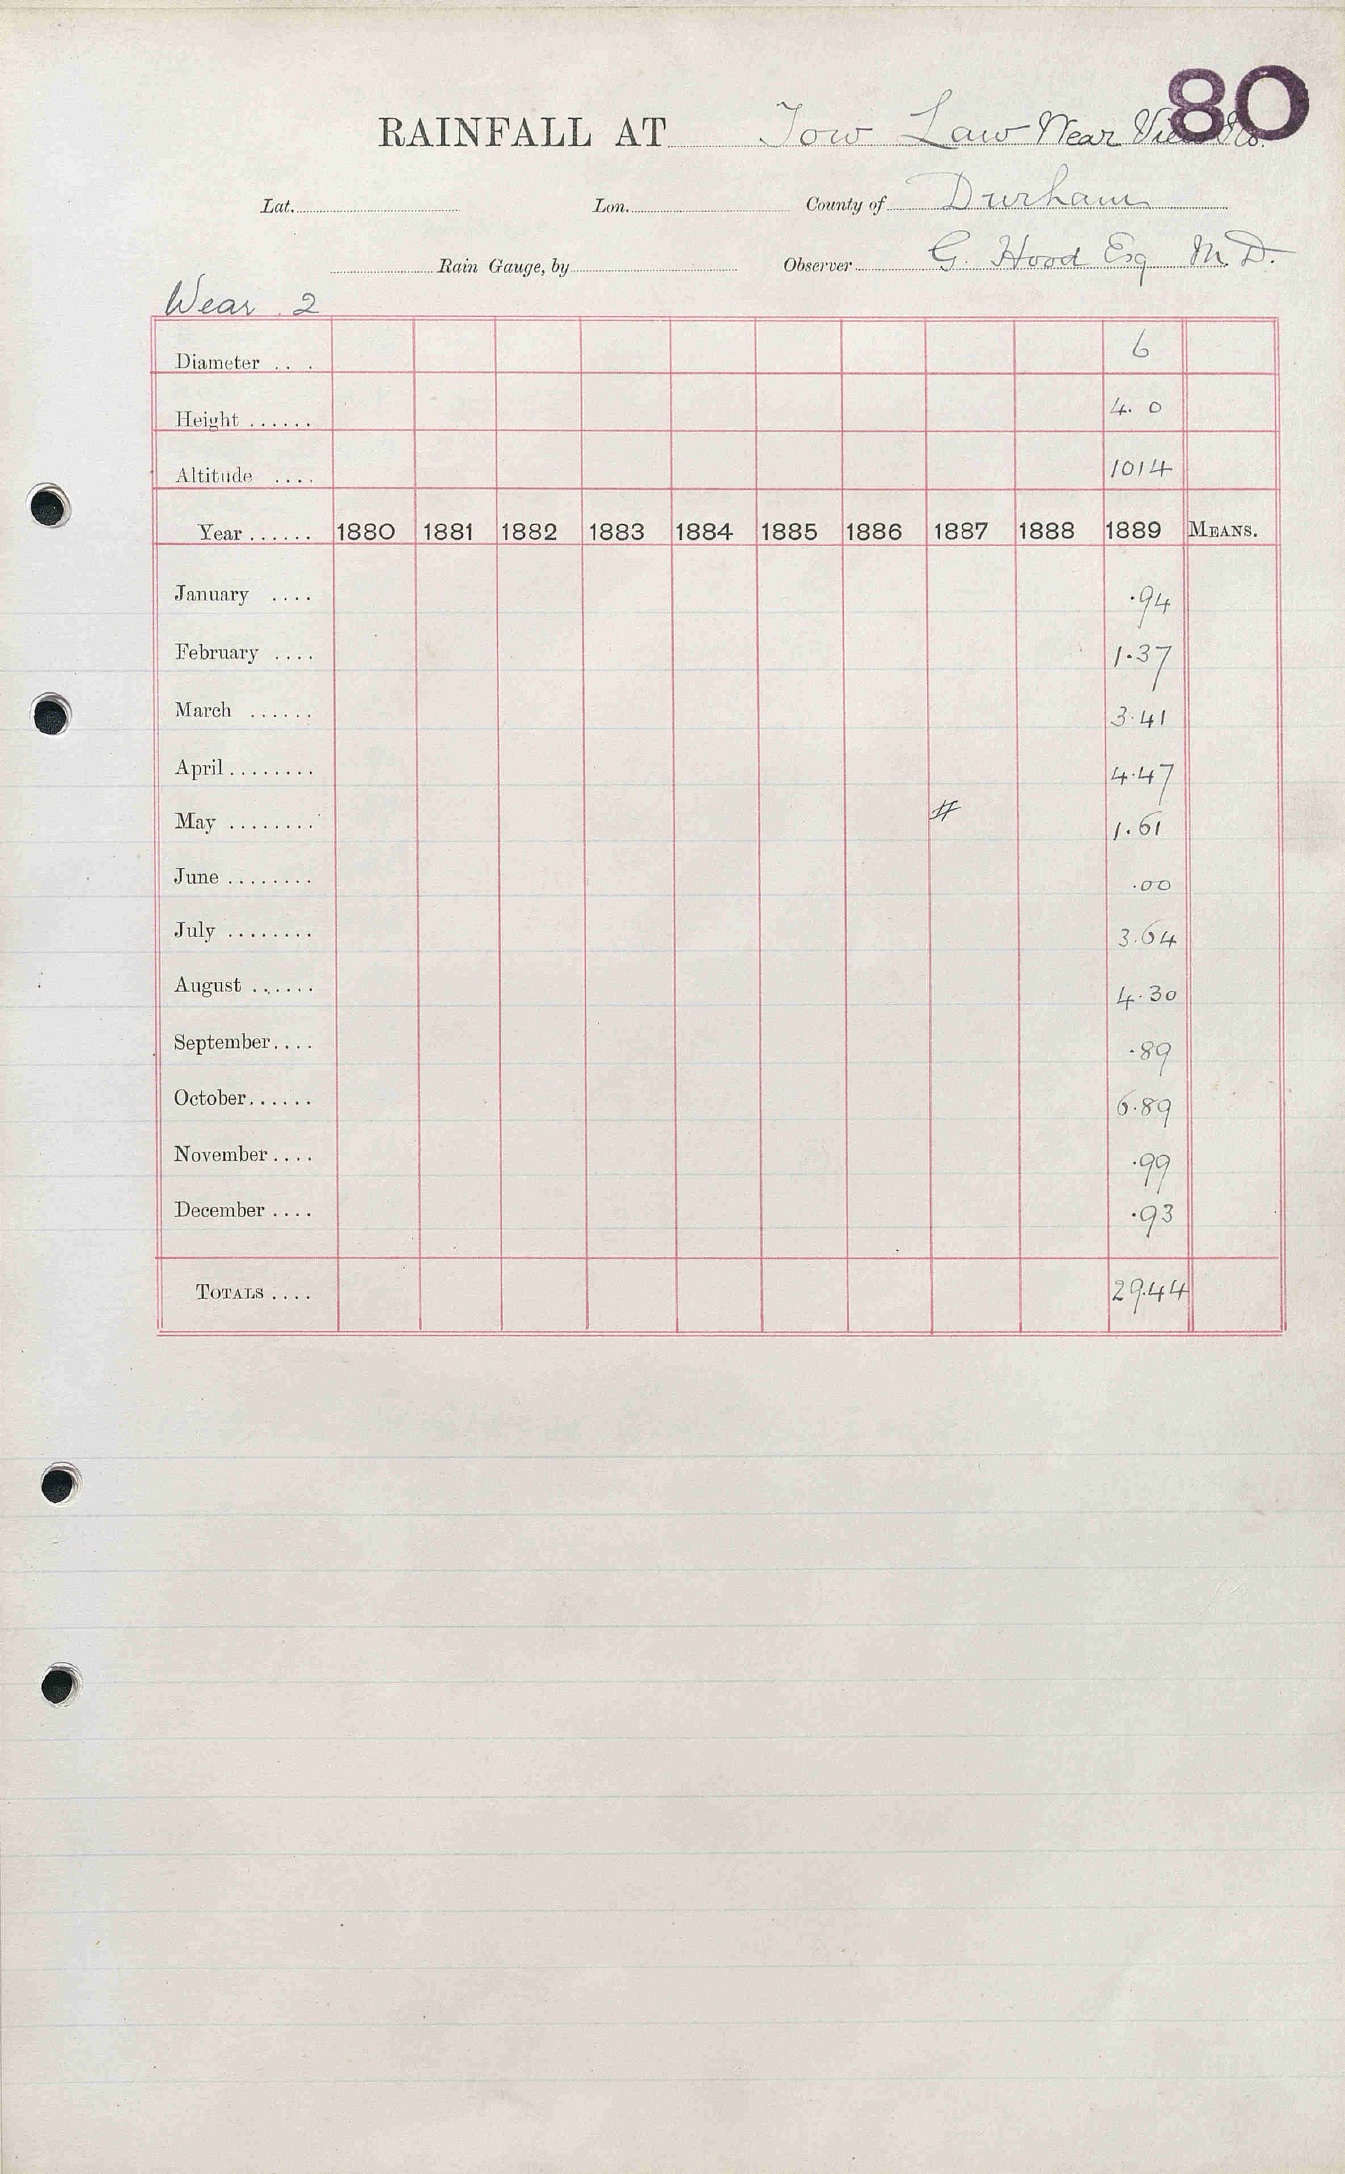 80
RAINFALL AT Tow Law Wear View Ho.
Lat. Lon. County of Durham
Rain Gauge, by Observer G. Hood Esq M.D.
Wear . 2
Diameter .... 6
Height ...... 4. 0
Altitude .... 1014
Year ...... 1880 1881 1882 1883 1884 1885 1886 1887 1888 1889 MEANS.
January .... .94
February .... 1.37
March ...... 3.41
April ........ 4.47
May ........ # 1.61
June ........ .00
July ........ 3.64
August ...... 4.30
September.... .89
October...... 6.89
November.... .99
December .... .93
TOTALS .... 29.44